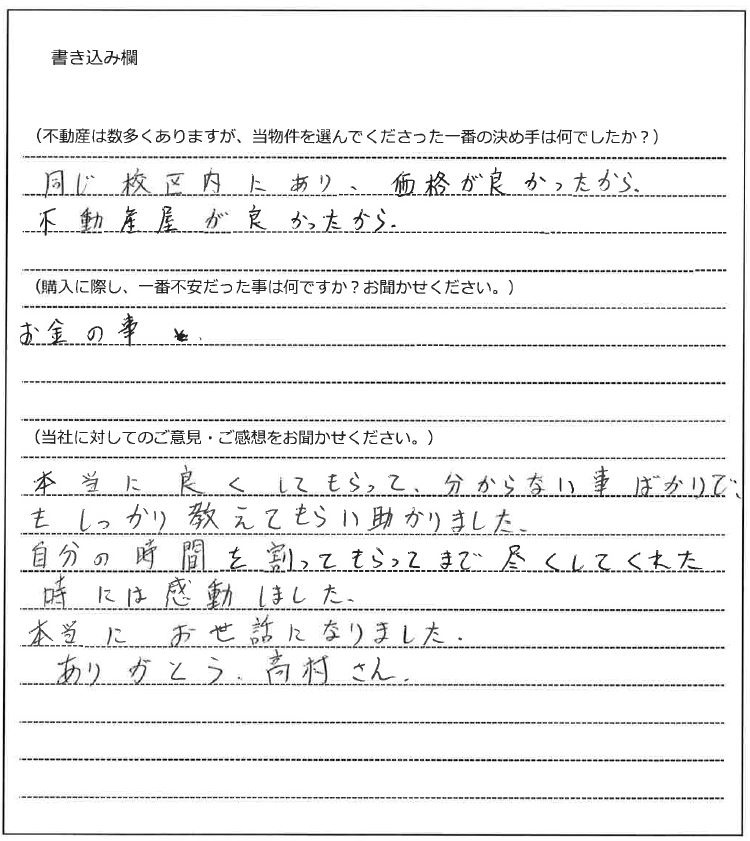 書き込み欄
（不動産は数多くありますが、当物件を選んでくださった一番の決め手は何でしたか？）
同じ校区内にあり、価格が良かったから、
不動産屋が良かったから.
（購入に際し、一番不安だった事は何ですか？お聞かせください。）
お金の事
（当社に対してのご意見・ご感想をお聞かせください。）
本当に良くしてもらって、分からない事ばかりで、
もしっかり教えてもらい助かりました.
自分の時間を割ってもらってまで尽くしてくれた
時には感動しました.
本当にお世話になりました.
ありがとう、高村さん.